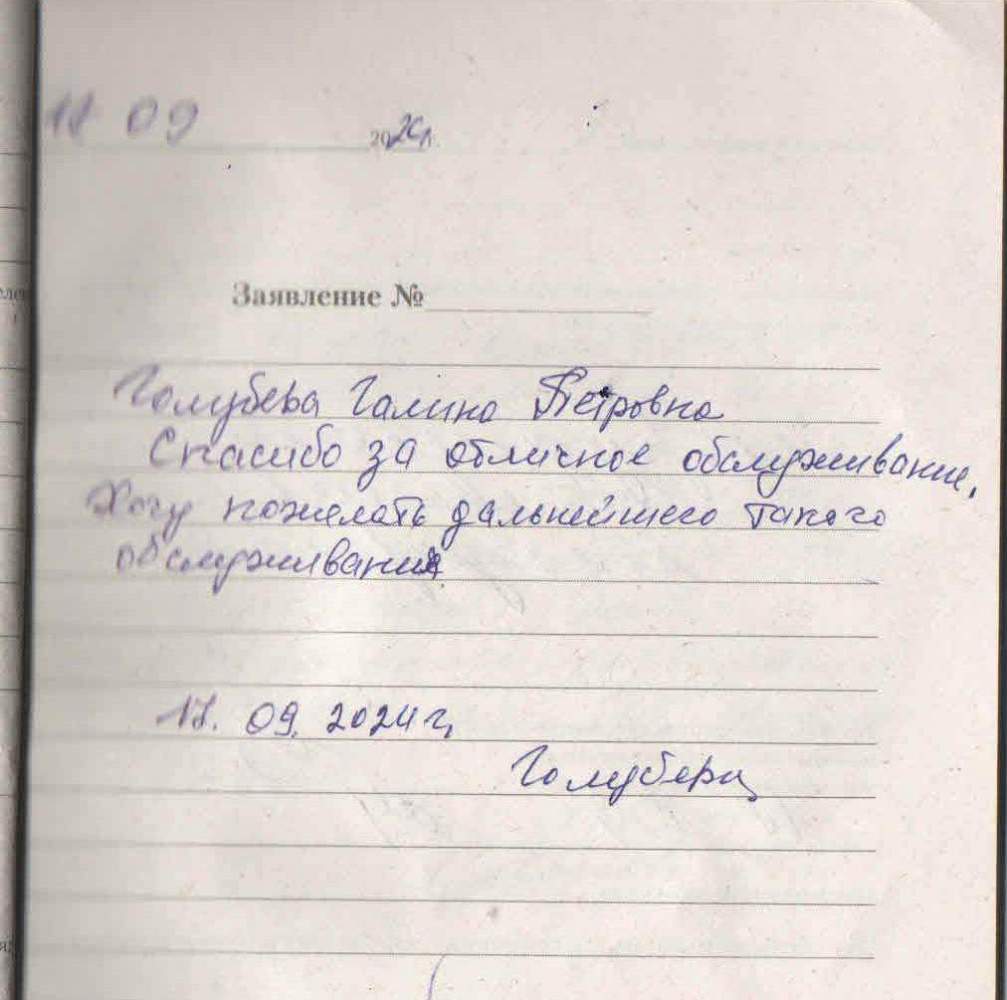 18 09 2024г.
Заявление №
Голубева Галина Петровна
Спасибо за отличное обслуживание,
Хочу пожелать дальнейшего такого
обслуживания
09. 2024 г,
Голубева